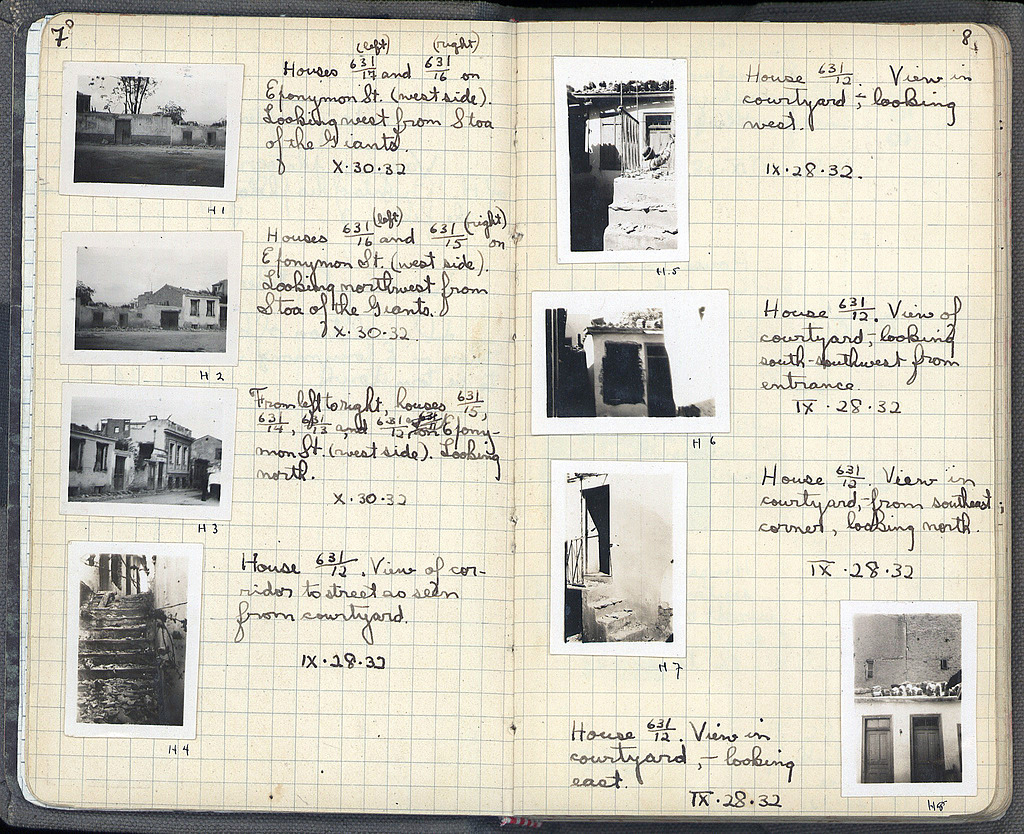 7
(left) (right)
Houses 631/17 and 631/16 on
Eponymon St. (west side).
Looking west from Stoa
of the Giants.
X·30·32
H 1
(left) (right)
Houses 631/16 and 631/15 on
Eponymon St. (west side).
Looking northwest from
Stoa of the Giants.
X·30·32.
H 2
From left to right, houses 631/15,
631/14, 631/13 and 631/12 on Epony-
mon St. (west side). Looking
north.
X·30·32
H 3
House 631/12. View of cor-
ridor to street as seen
from courtyard.
IX·28·32
H 4
8
House 631/12. View in
courtyard,- looking
west.
IX·28·32.
H 5
House 631/12. View of
courtyard,- looking
south-southwest from
entrance.
IX·28·32
H 6
House 631/12. View in
courtyard,-from southeast
corner, looking north.
IX·28·32
H 7
House 631/12. View in
courtyard,- looking
east.
IX·28·32
H8